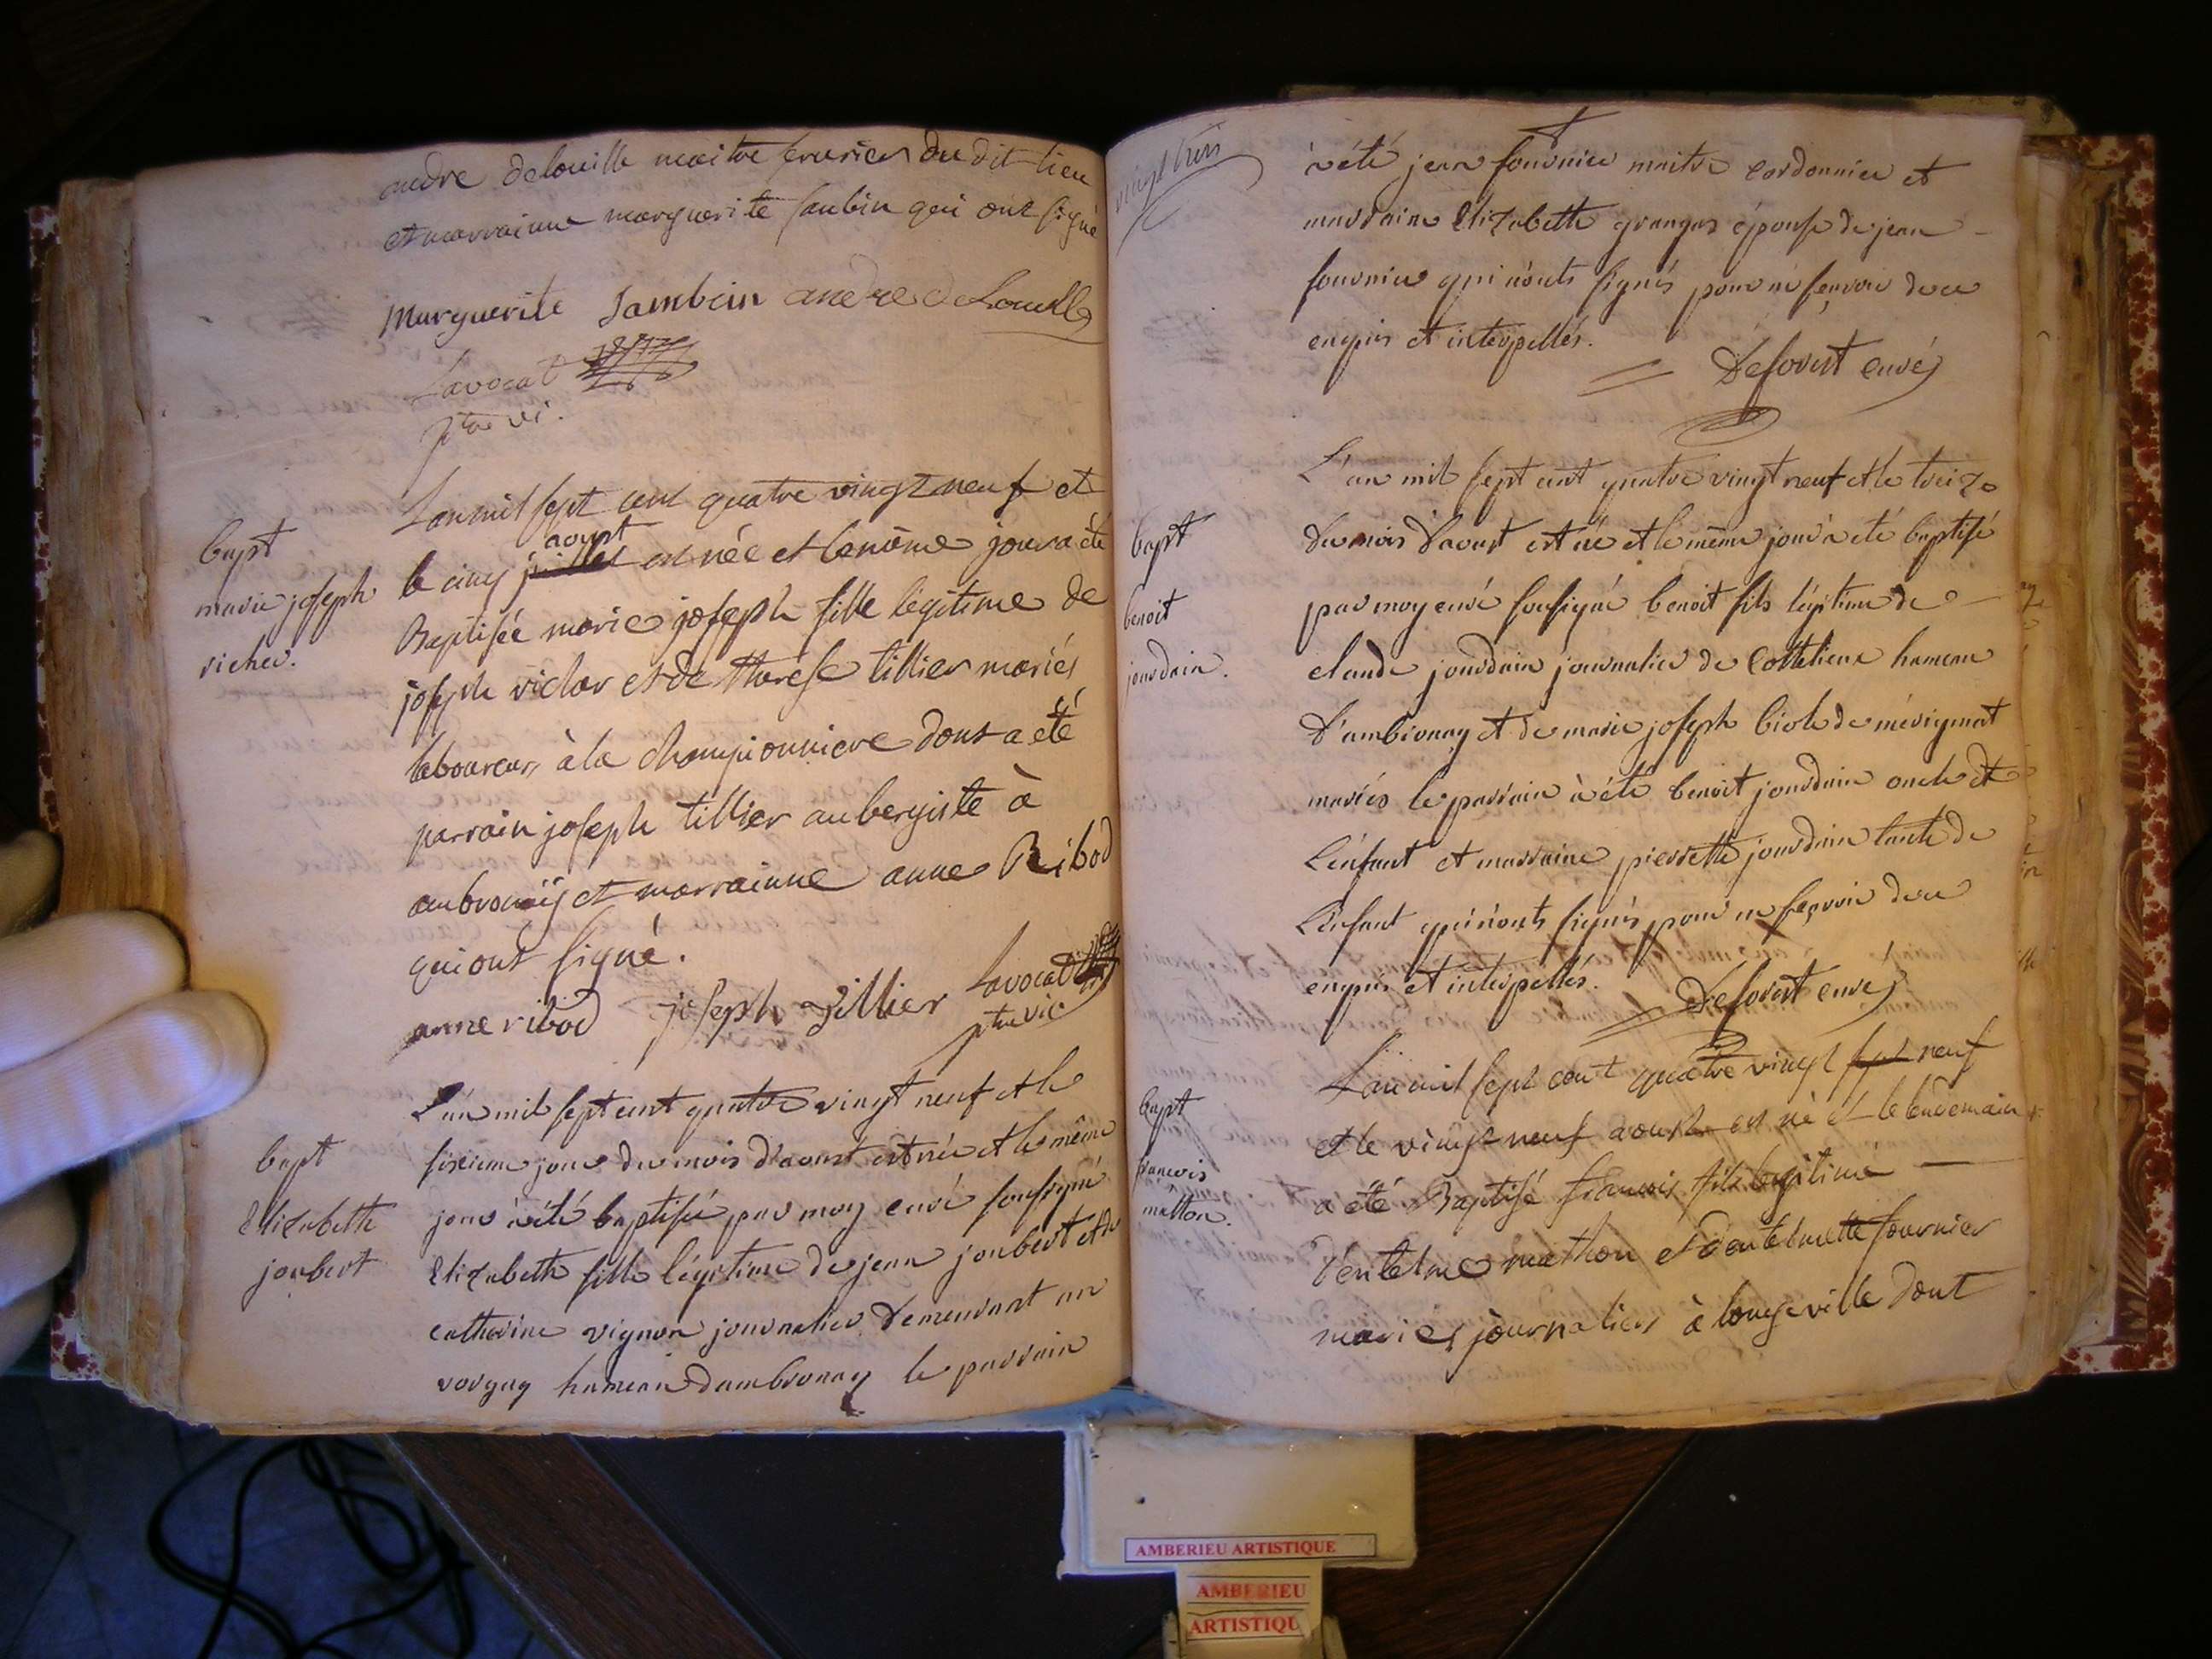 andre delouille maitre serurier du dit lieu
et marrainne marguerite sanbin qui ont signé
Marguerite Sambin andre deLouille
Lavocat
ptre vi.
L'an mil sept cent quatre vingt neuf et
le cinq juillet aoust est née et le même jour a été
Baptisée marie joseph fille légitime de
joseph richer et de therese tillier mariés
laboureurs à la championniere dont a été
parrain joseph tillier aubergiste à
ambronaÿ et marrainne anne Ribod
qui ont signé.
anne ribod joseph Tillier Lavocat
ptre vic
bapt
marie joseph
richer.
L'an mil sept cent quatre vingt neuf et le
sixieme jour du mois d'aoust est née et le même
jour à été baptisée par moy curé soussigné
Elizabeth fille légitime de jean joubert et de
catherine vignon journalier demeurant au
vorgay hameau d'ambronay le parrain
bapt
Elizabette
joubert
vingt trois
à été jean fournier maitre cordonnier et
marraine Elizabette granges épouse de jean
fournier qui n'onts signés pour ne sçavoir de ce
enquis et interpellés.
Deforest curé
L'an mil sept cent quatre vingt neuf et le treize
du mois d'aoust est né et le même jour à été baptisé
par moy curé soussigné benoit fils légitime de
claude jourdain journalier de Cottelieux hameau
d'ambronay et de marie joseph biole de mérignat
mariés le parrain à été benoit jourdain oncle de
L'enfant et marraine pierrette jourdain tante de
L'enfant qui n'onts signés pour ne sçavoir de ce
enquis et interpellés.
Deforest curé
bapt
benoit
jourdain.
L'an mil sept cent quatre vingt sept neuf
et le vingt neuf aoust est né et le lendemain
a été Baptisé francois fils legitime
d'entelme mathon et d'entelmette fournier
mariés journaliers à longeville dont
bapt
francois
matton.
AMBERIEU ARTISTIQUE
AMBERIEU
ARTISTIQU